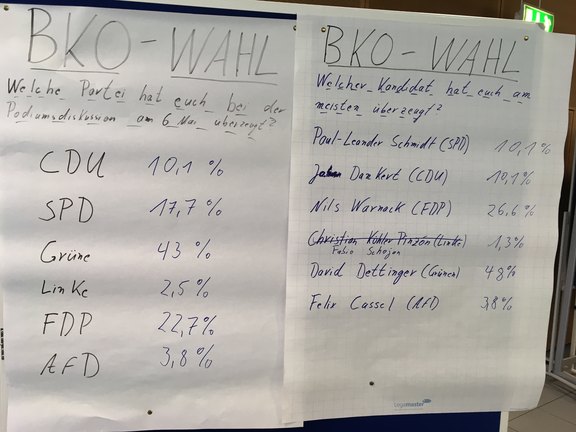 BKO-WAHL
Welche Partei hat euch bei der
Podiumsdiskussion am 6 Mai überzeugt?
CDU 10,1 %
SPD 17,7 %
Grüne 43 %
Linke 2,5 %
FDP 22,7 %
AfD 3,8 %
BKO-WAHL
Welcher Kandidat hat euch am
meisten überzeugt?
Paul-Leander Schmidt (SPD) 10,1 %
Dankert (CDU) 10,1 %
Nils Warnack (FDP) 26,6 %
Christian Kohler Pinzón (Linke) 1,3 %
Fabio
David Dettinger (Grünen) 48 %
Felix Cassel (AfD) 3,8 %
Legamaster